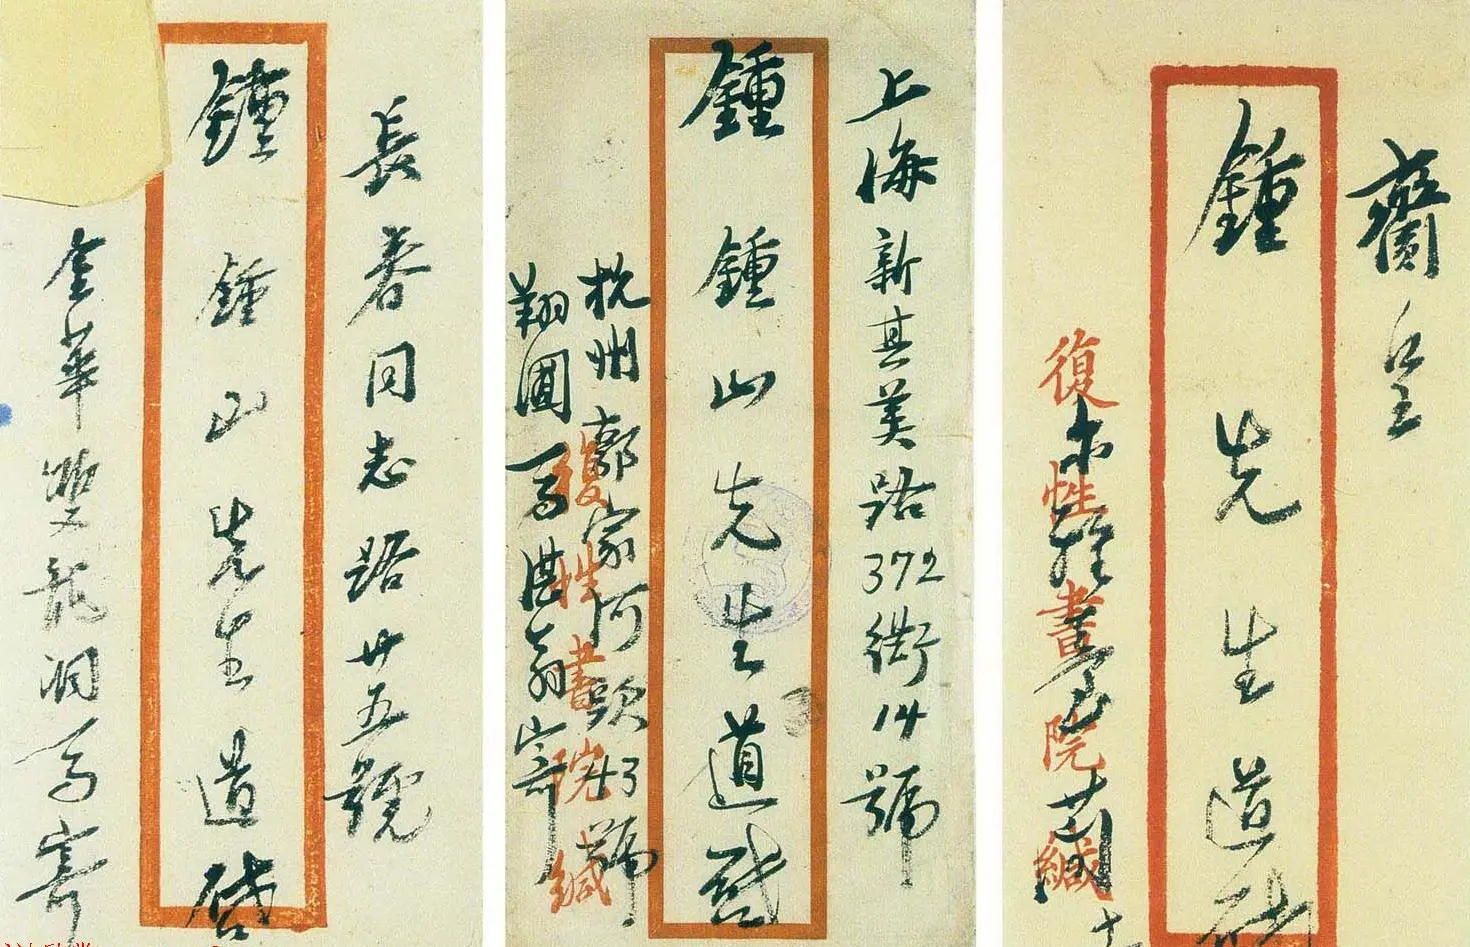 長春同志路廿五號
鍾鍾山先生道啓
金華雙龍洞馬寄
上海新其美路372衖14號
鍾鍾山先生道啟
杭州鄭家河頭43號
翔圃馬湛翁寄
復性書院緘
齎呈
鍾先生道啓
復性書院緘